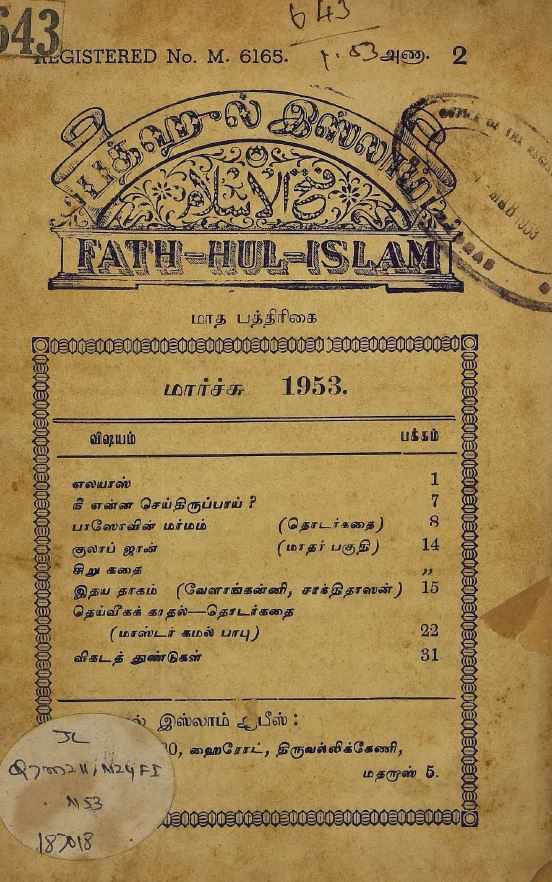 643
643
REGISTERED No. M. 6165.
அணா. 2
பத்ஹுல் இஸ்லாம்
فتح الاسلام
FATH-HUL-ISLAM
மாத பத்திரிகை
மார்ச்சு 1953.
விஷயம் பக்கம்
எலயாஸ் 1
நீ என்ன செய்திருப்பாய் ? 7
பாஸோவின் மர்மம் (தொடர்கதை) 8
குலாப் ஜான் (மாதர் பகுதி) 14
சிறு கதை ,,
இதய தாகம் (வேளாங்கன்னி, சாக்திதாஸன்) 15
தெய்வீகக் காதல்—தொடர்கதை
(மாஸ்டர் கமல் பாபு) 22
விகடத் துண்டுகள் 31
ல் இஸ்லாம் ஆபீஸ் :
30, ஹைரோட், திருவல்லிக்கேணி,
மதராஸ் 5.
OFFICE OF THE REGIS
MADRAS
JL
N53
187018